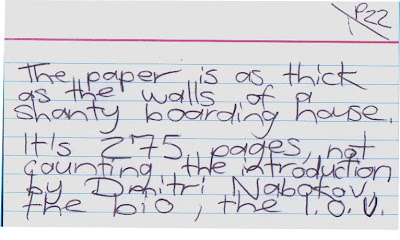 P22
The paper is as thick
as the walls of a
shanty boarding house.
It's 275 pages, not
counting the introduction
by Dmitri Nabokov,
the bio, the I.O.U.